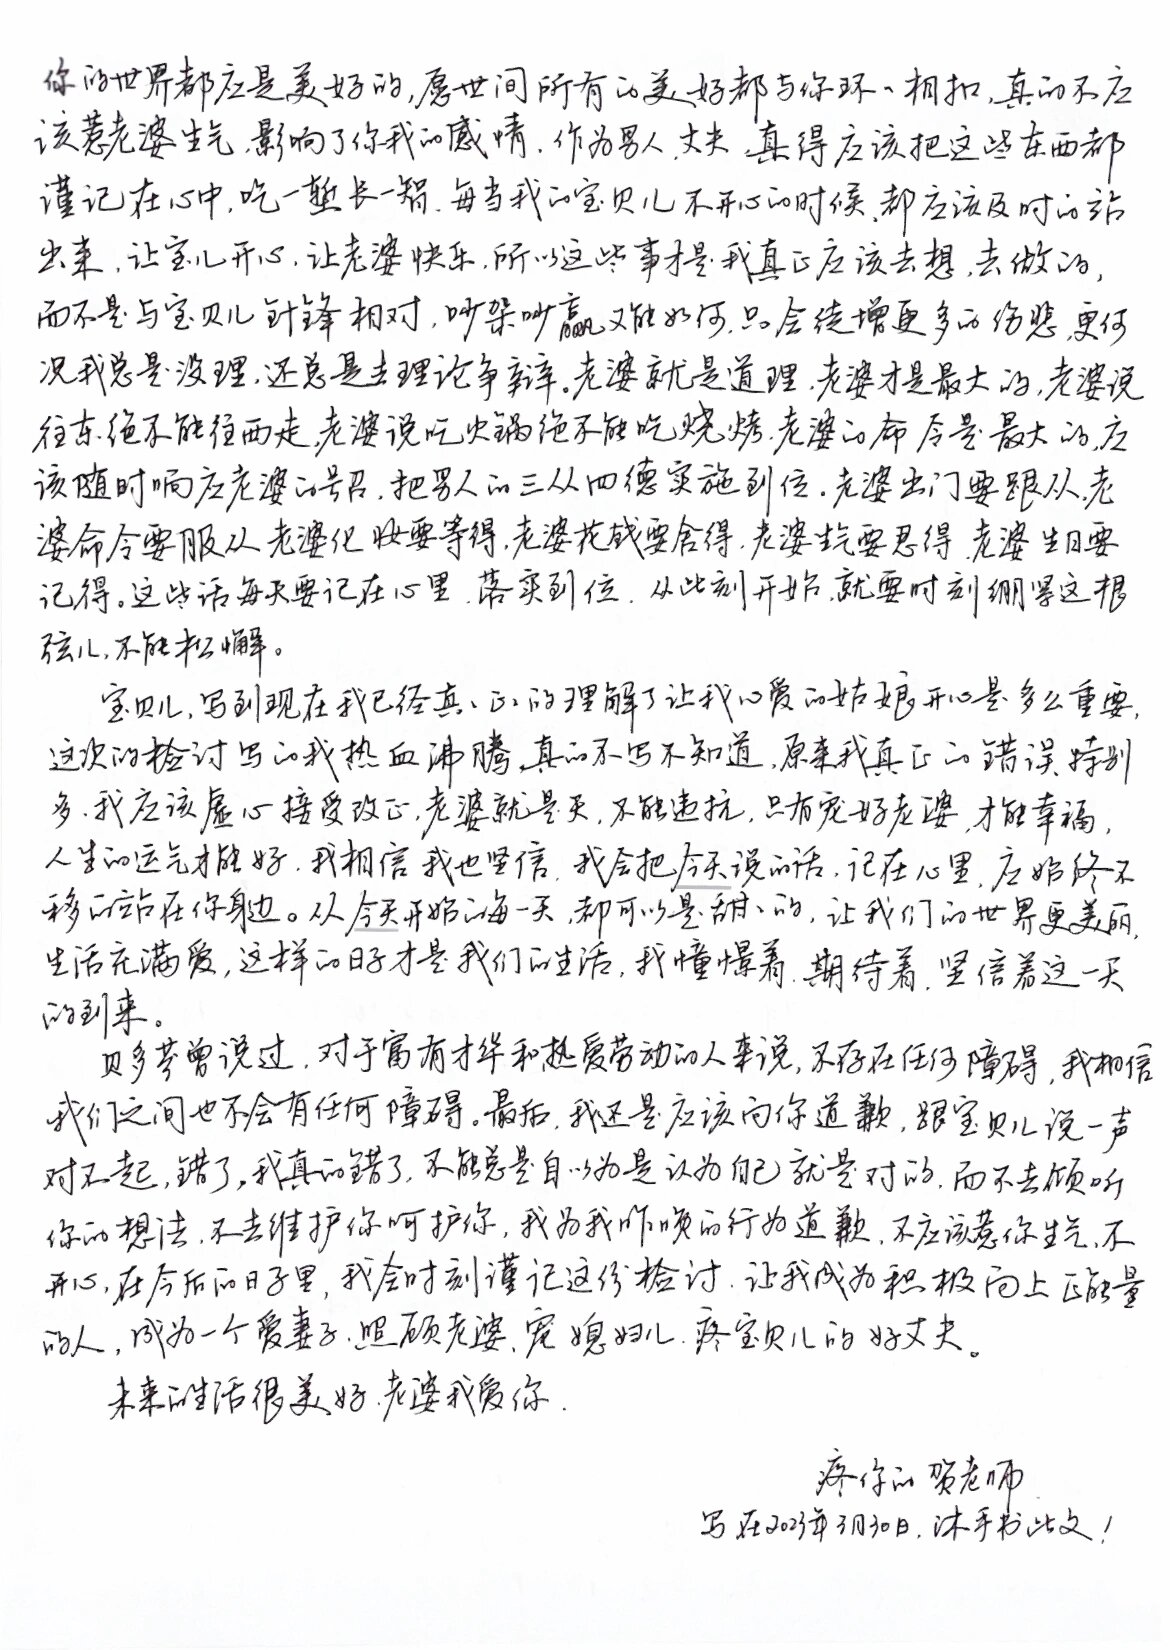 你的世界都应是美好的,愿世间所有的美好都与你环、相扣,真的不应
该惹老婆生气,影响了你我的感情.作为男人,丈夫,真得应该把这些东西都
谨记在心中,吃一堑长一智.每当我的宝贝儿不开心的时候,都应该及时的站
出来,让宝儿开心,让老婆快乐,所以这些事才是我真正应该去想,去做的,
而不是与宝贝儿针锋相对,吵架吵赢又能如何,只会徒增更多的伤悲,更何
况我总是没理,还总是去理论争辩。老婆就是道理,老婆才是最大的,老婆说
往东绝不能往西走,老婆说吃火锅绝不能吃烧烤,老婆的命令是最大的,应
该随时响应老婆的号召,把男人的三从四德实施到位。老婆出门要跟从,老
婆命令要服从老婆化妆要等得,老婆花钱要舍得,老婆生气要忍得,老婆生日要
记得。这些话每天要记在心里,落实到位,从此刻开始,就要时刻绷紧这根
弦儿,不能松懈。
宝贝儿,写到现在我已经真、正、的理解了让我心爱的姑娘开心是多么重要,
这次的检讨写的我热血沸腾,真的不写不知道,原来我真正的错误特别
多,我应该虚心接受改正,老婆就是天,不能违抗,只有宠好老婆,才能幸福,
人生的运气才能好,我相信我也坚信,我会把今天说的话,记在心里,应始终不
移的站在你身边。从今天开始的每一天,都可以是甜、的,让我们的世界更美丽,
生活充满爱,这样的日子才是我们的生活,我憧憬着,期待着,坚信着这一天
的到来。
贝多芬曾说过,对于富有才华和热爱劳动的人来说,不存在任何障碍,我相信
我们之间也不会有任何障碍。最后,我还是应该向你道歉,跟宝贝儿说一声
对不起,错了,我真的错了,不能总是自以为是认为自己就是对的,而不去倾听
你的想法,不去维护你呵护你,我为我昨晚的行为道歉,不应该惹你生气,不
开心,在今后的日子里,我会时刻谨记这份检讨,让我成为积极向上正能量
的人,成为一个爱妻子,照顾老婆,宠媳妇儿,疼宝贝儿的好丈夫。
未来的生活很美好,老婆我爱你.
疼你的贺老师
写在2023年3月30日,沐手书此文!